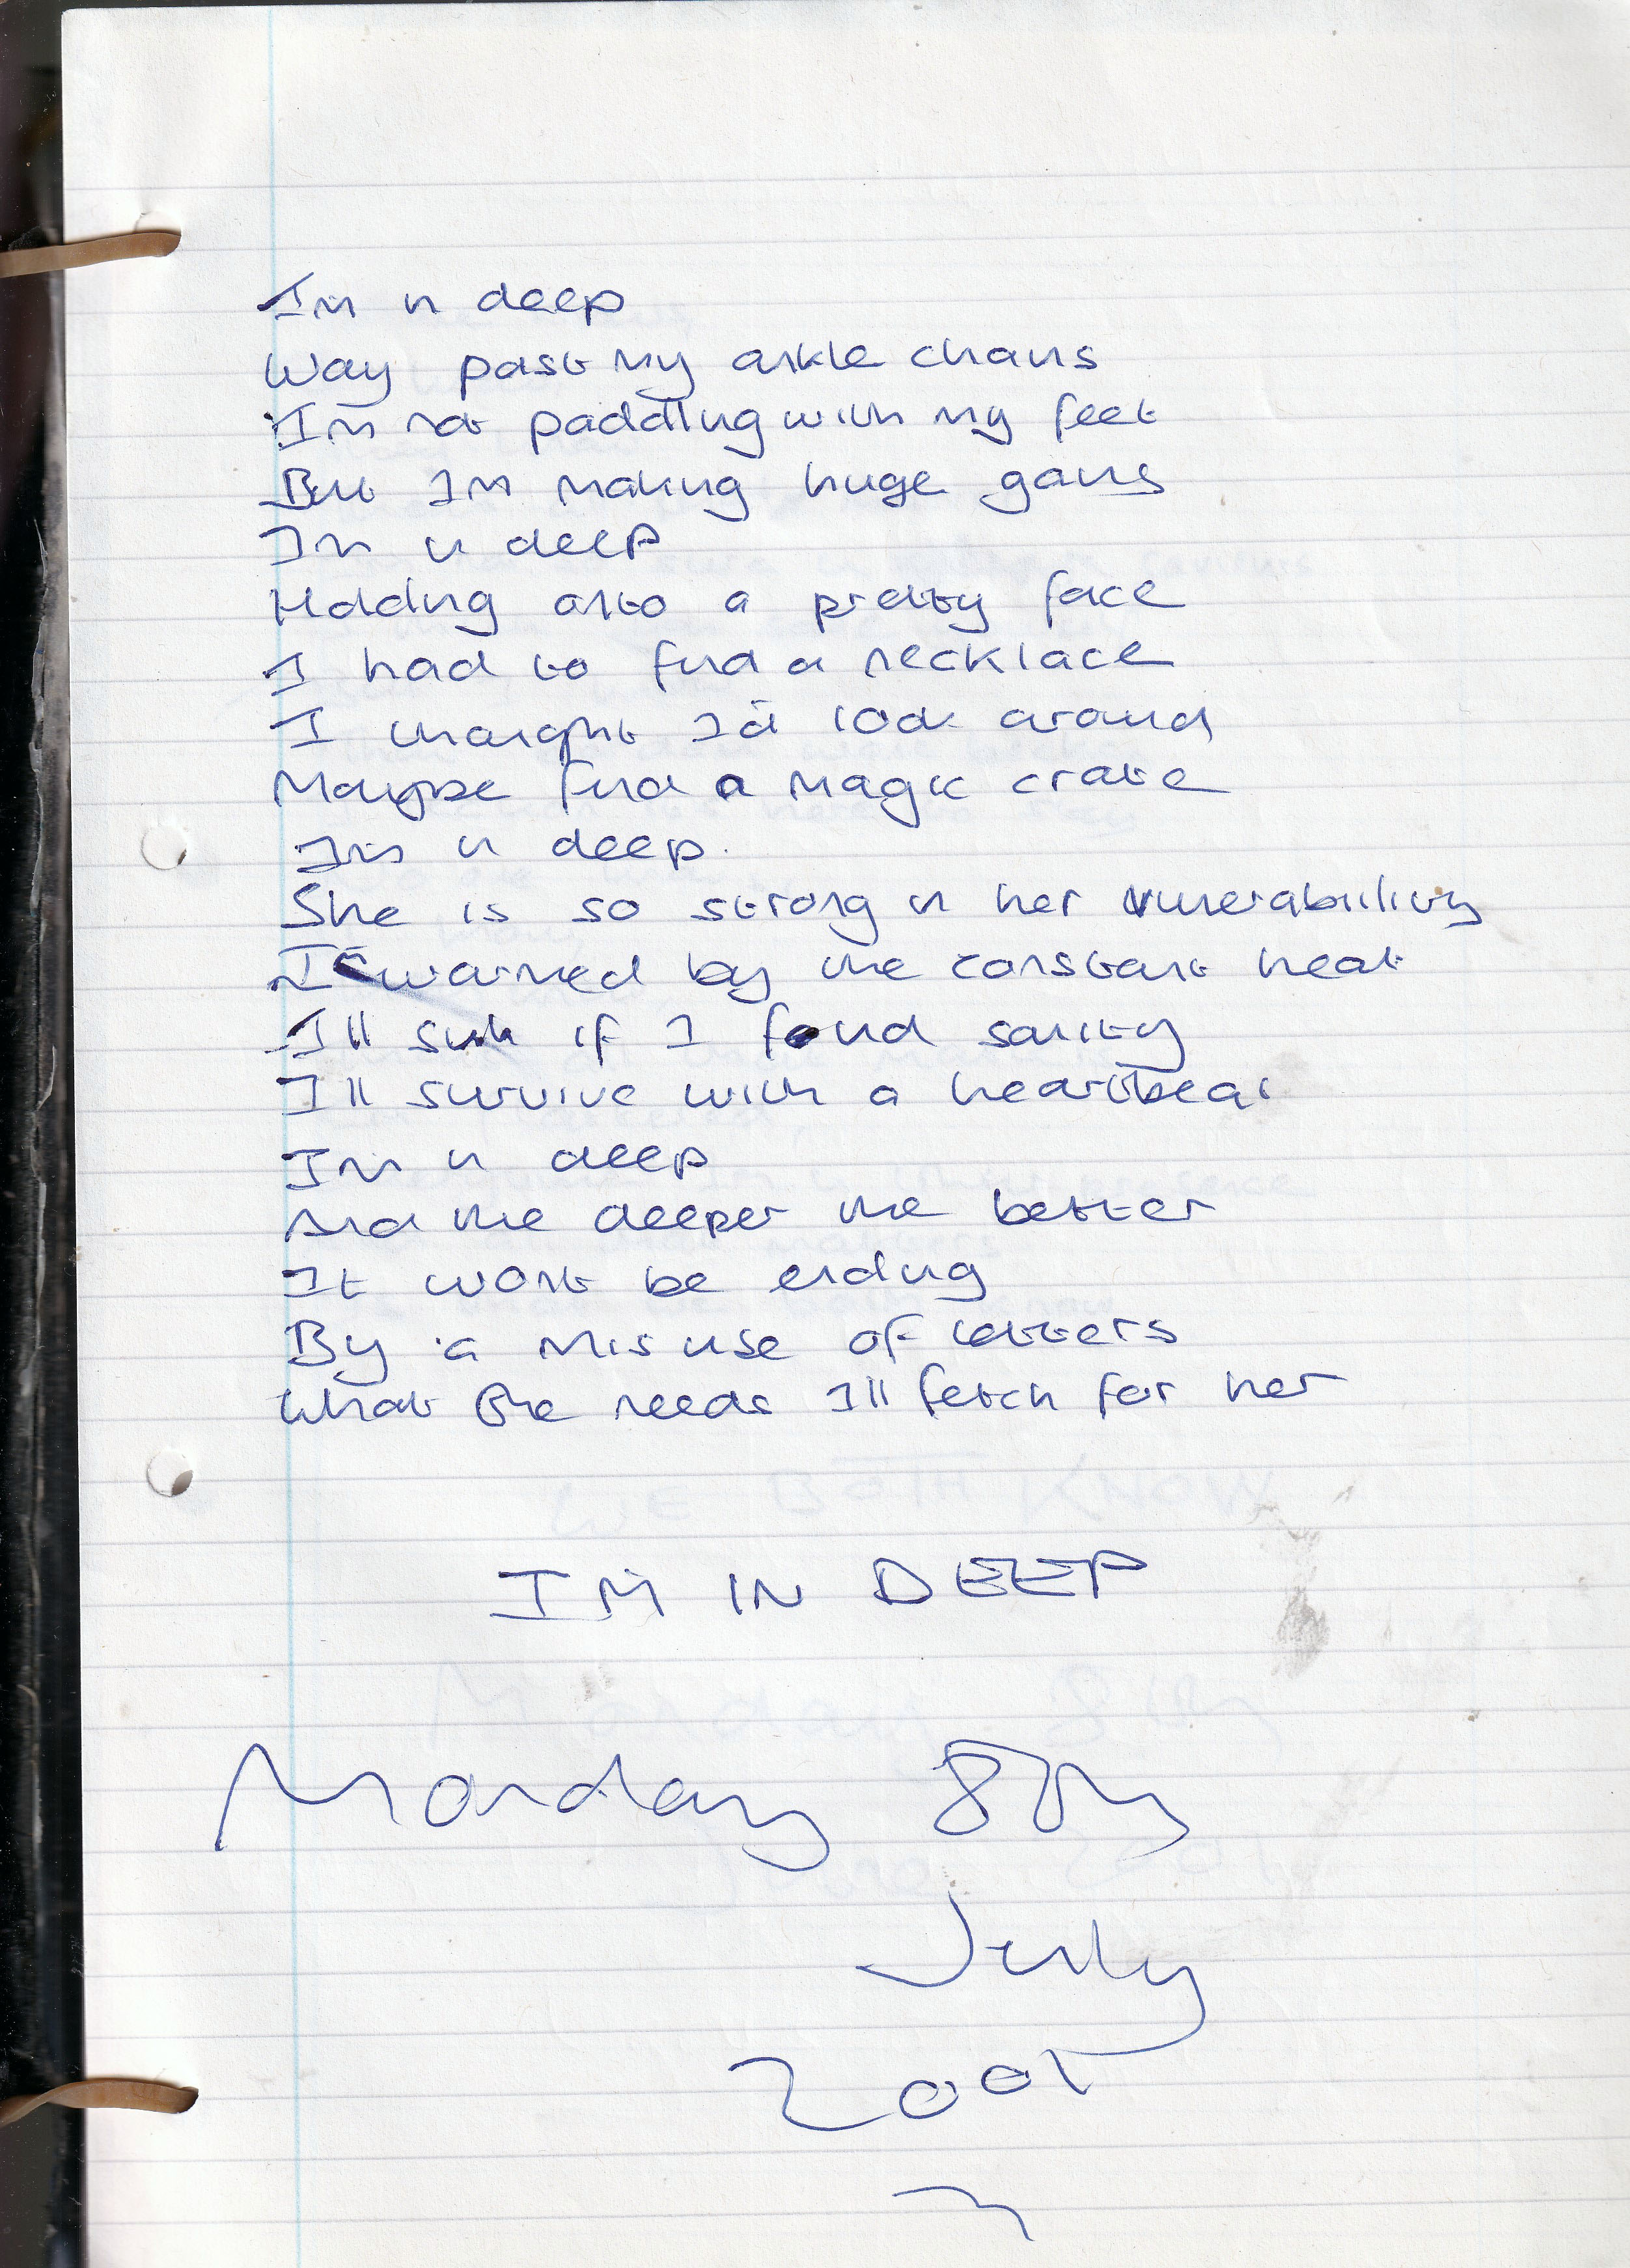 I'm in deep
Way past my ankle chains
I'm not paddling with my feet
But I'm making huge gains
I'm in deep
Holding onto a pretty face
I had to find a necklace
I thought I'd look around
Maybe find a magic crate
I'm in deep.
She is so strong in her vunerabiility
I warmed by the constant heat
I'll sink if I found sanity
I'll survive with a heartbeat
I'm in deep
And the deeper the better
It wont be ending
By a misuse of letters
What she needs I'll fetch for her
I'M IN DEEP
Monday 8th
July
2001